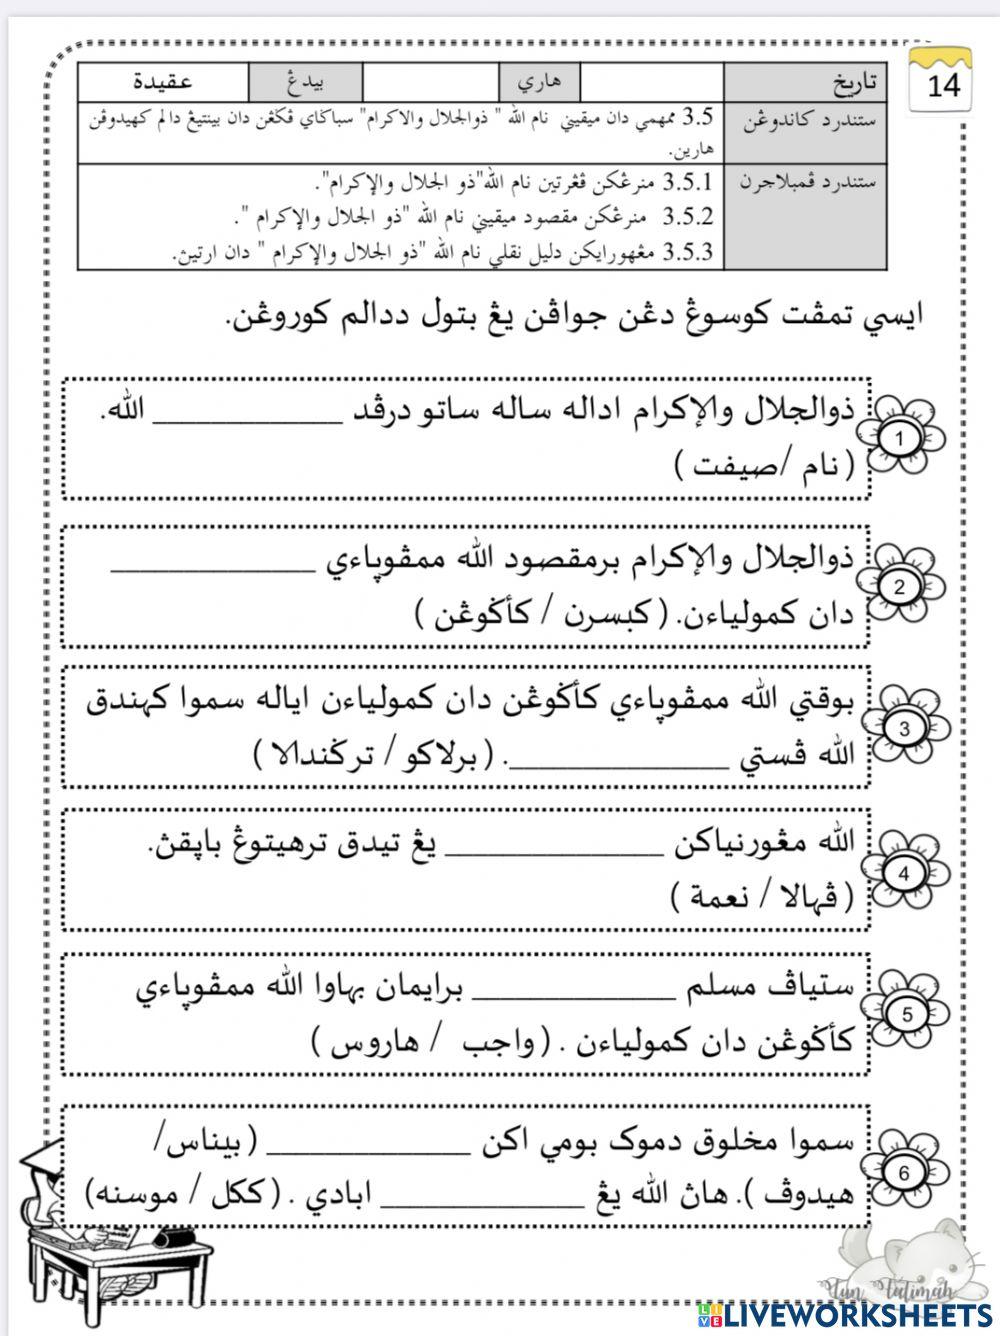 14
تاريخ هاري بيدڠ عقيدة
ستندرد كاندوڠن 3.5 ممهمي دان ميقيني نام الله " ذوالجلال والاكرام" سباڬاي ڤڬڠن دان بينتيڠ دالم كهيدوڤن
هارين.
ستندرد ڤمبلاجرن 3.5.1 منرڠكن ڤڠرتين نام الله"ذو الجلال والإكرام".
3.5.2 منرڠكن مقصود ميقيني نام الله "ذو الجلال والإكرام ".
3.5.3 مڠهورايكن دليل نقلي نام الله "ذو الجلال والإكرام " دان ارتيڽ.
ايسي تمڤت كوسوڠ دڠن جواڤن يڠ بتول ددالم كوروڠن.
1
ذوالجلال والإكرام اداله ساله ساتو درڤد _____________ الله.
( نام / صيفت )
2
ذوالجلال والإكرام برمقصود الله ممڤوڽاءي ______________
دان كمولياءن. ( كبسرن / كأڬوڠن )
3
بوقتي الله ممڤوڽاءي كأڬوڠن دان كمولياءن اياله سموا كهندق
الله ڤستي _______________. ( برلاكو / ترڬندالا )
4
الله مڠورنياكن _______________ يڠ تيدق ترهيتوڠ باڽقڽ.
( ڤهالا / نعمة )
5
ستياڤ مسلم ______________ برايمان بهاوا الله ممڤوڽاءي
كأڬوڠن دان كمولياءن . ( واجب / هاروس )
6
سموا مخلوق دموک بومي اكن ______________ ( بيناس/
هيدوڤ ). هاڽ الله يڠ ______________ ابادي . ( ككل / موسنه)
Tun Fatimah
LIVEWORKSHEETS